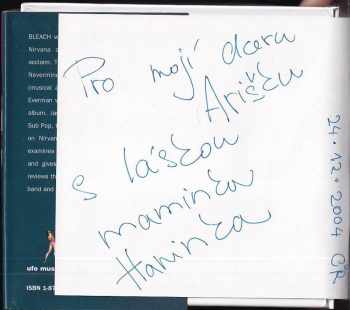 BLEACH w
Nirvana
acclaim. T
Nevermin
(musical a
Everman v
album. Ja
Sub Pop,
on Nirvan
examines
and gives
reviews th
band and
ufo mus
ISBN 1-87
Pro mojí dceru
Arišku
s láskou
maminka
Haninka
24.12.2004 ČR